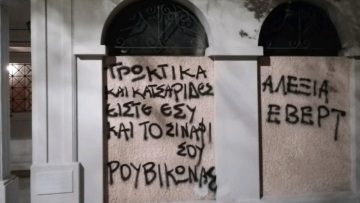 ΤΡΩΚΤΙΚΑ
ΚΑΙ ΚΑΤΣΑΡΙΔΕΣ
ΕΙΣΤΕ ΕΣΥ
ΚΑΙ ΤΟ ΣΙΝΑΦΙ
ΣΟΥ
ΡΟΥΒΙΚΩΝΑΣ
ΑΛΕΞΙΑ
ΕΒΕΡΤ